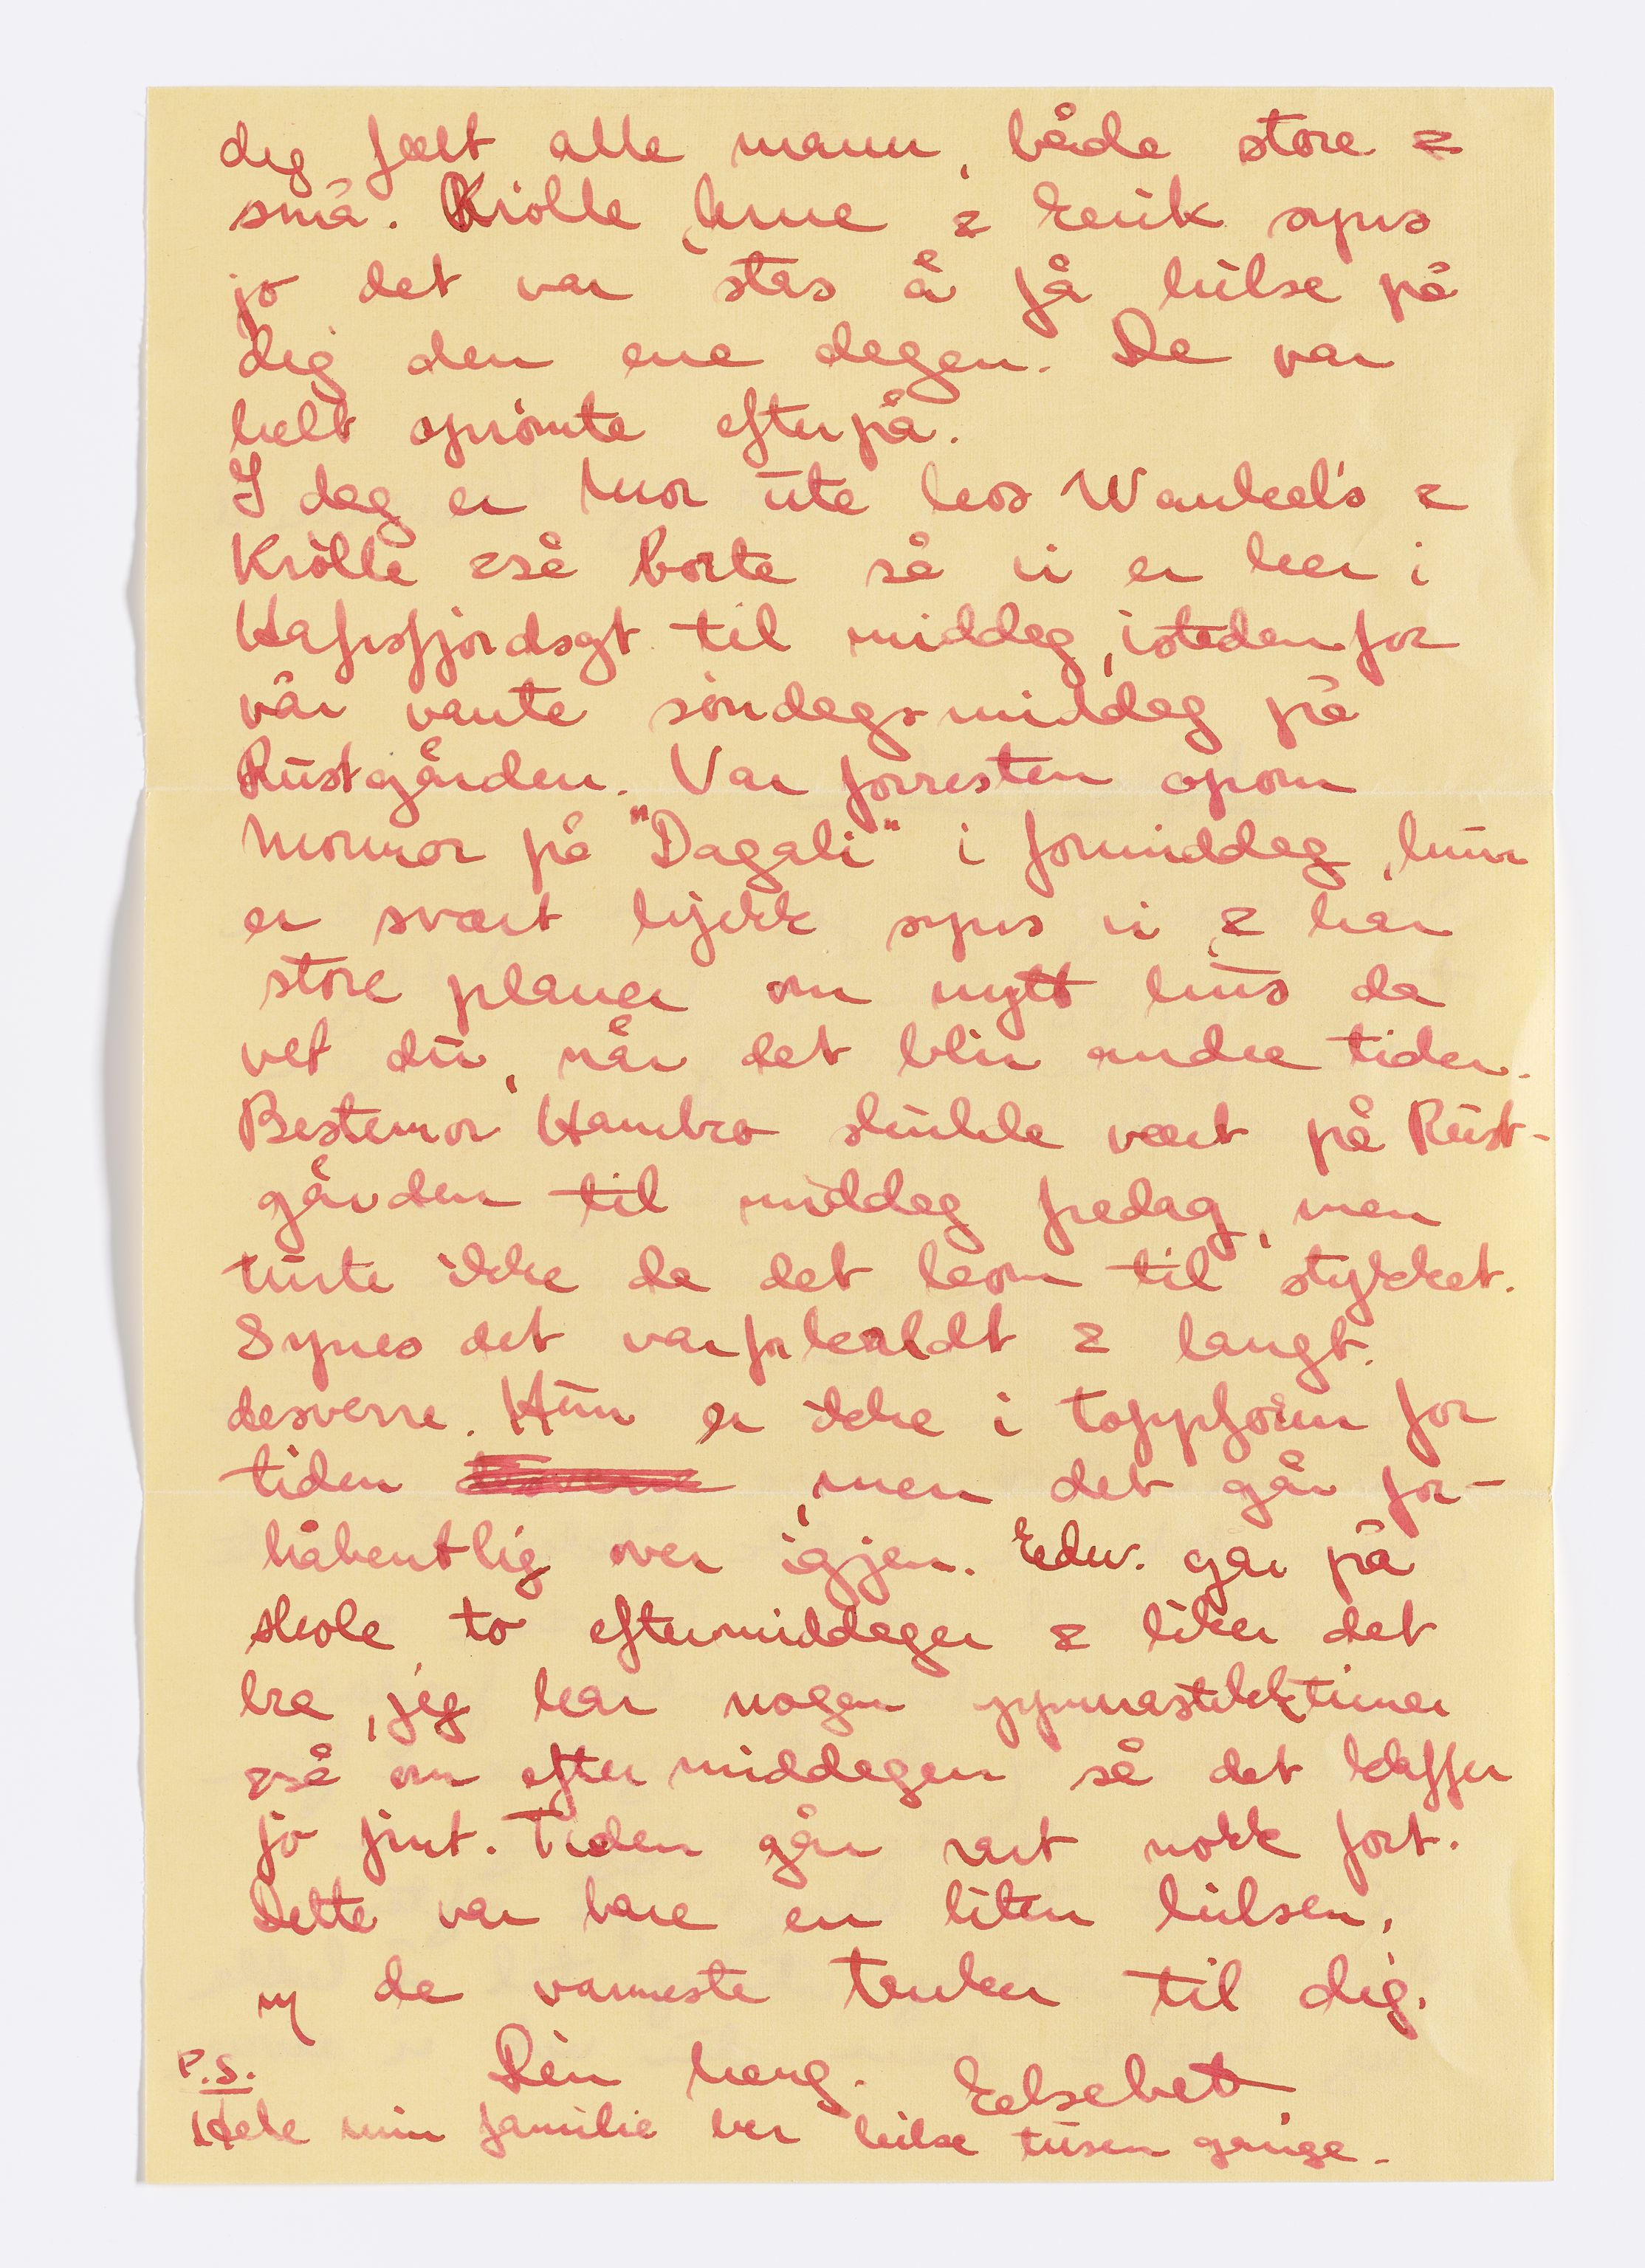 dig fælt alle mann, både store &
små. Krølle, hun & Eerik synes
jo det var stas å få hilse på
dig den ene dagen. De var
helt oprømte efterpå.
I dag er Mor ute hos Wankel's &
Krølle også borte så vi er her i
Hafrsfjordsgt til middag, istedenfor
vår vante søndagsmiddag på
Rustgården. Var forresten opom
Mormor på "Dagali" i formiddag, hun
er svært kjekk synes vi & har
store planer om nytt hus da
vet du, når det blir andre tider.
Bestemor Hambro skulde vært på Rust-
gården til middag fredag, men
turte ikke da det kom til stykket.
Synes det var for kaldt & langt
desverre. Hun er ikke i toppform for
tiden, men det går for-
håbentlig over igjen. Edw. går på
skole to eftermiddager & liker det
bra, jeg har nogen gymnastikktimer
også om eftermiddagen så det klaffer
jo fint. Tiden går rart nokk fort.
Dette var bare en liten hilsen,
m de varmeste tanker til dig.
Din heng. Elsebet
P.S.
Hele min familie ber hilse tusen gange.